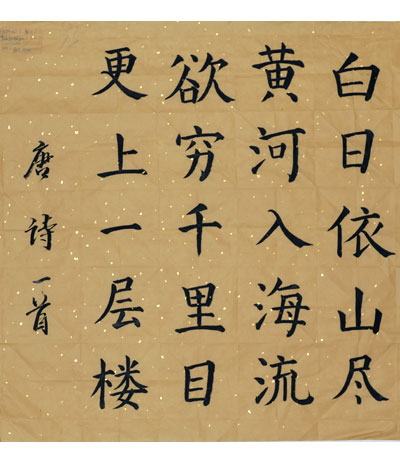 白日依山尽
黄河入海流
欲穷千里目
更上一层楼
唐诗一首